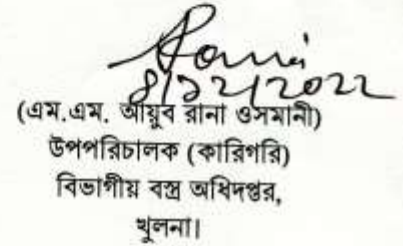 8/12/2022
(এম.এম. আয়ুব রানা ওসমানী)
উপপরিচালক (কারিগরি)
বিভাগীয় বস্ত্র অধিদপ্তর,
খুলনা।